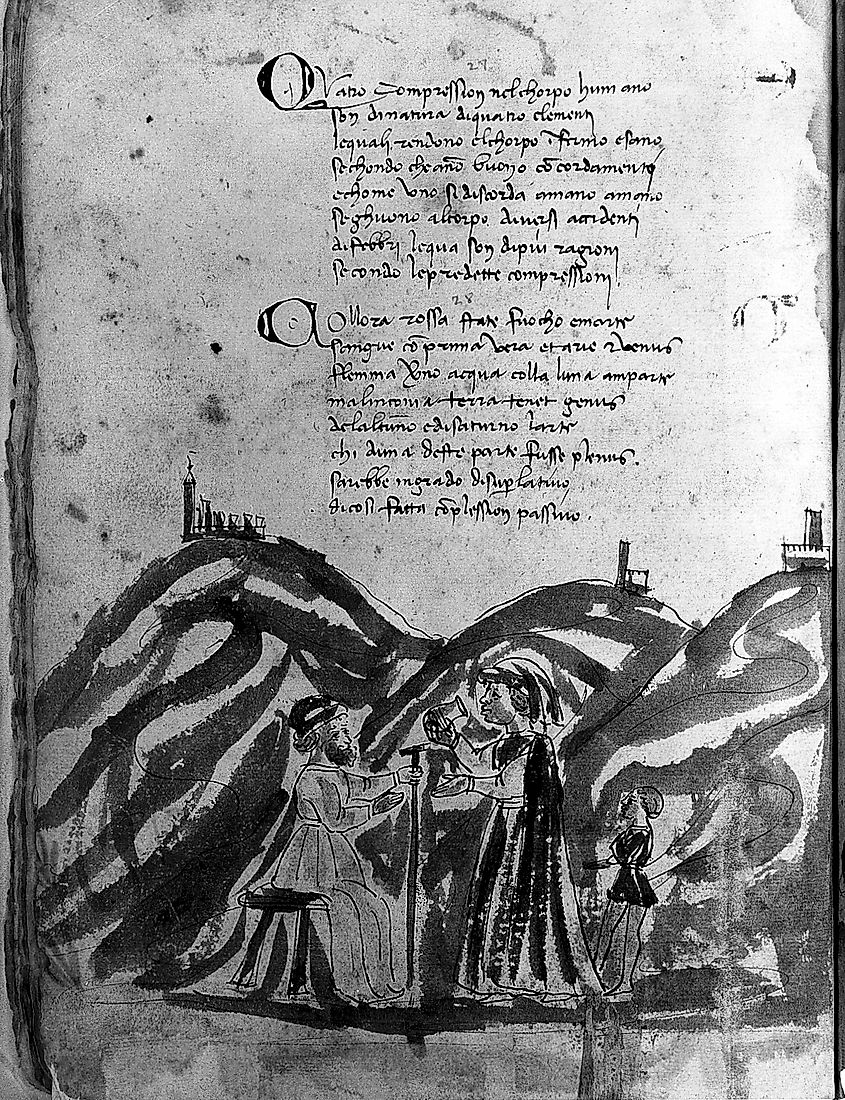 27
Quatro Compression nel chorpo humano
son dinatura diquatro elementi
lequali rendono elchorpo ifermo esano
sechondo cheano buono cocordamento
echome uno sidiscorda amano amano
seghuono alcorpo diversi accidenti
difebbri lequa son dipiu ragioni
secondo lepredette compressioni
28
Collora rossa state fuocho emarte
sangue coprima vera et arie 2 venus
flemma Vno acqua colla luna amparte
malinconia terra tenet genus
delaltuno edisaturno larte
chi duna deste parte fusse plenus.
sarebbe ingrado disuplativo
dicosi fatta coplession passivo.